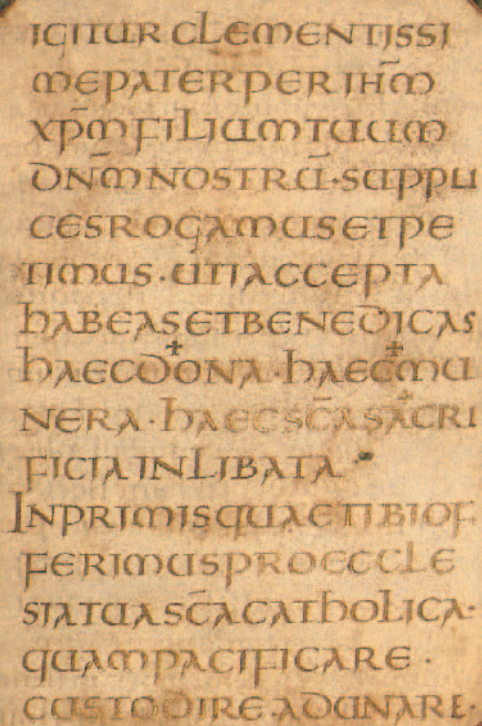 IGITUR CLEMENTISSI
ME PATER PER IHM̄
XP̄M FILIUM TUUM
DNM̄ NOSTRŪ · SUPPLI
CES ROGAMUS ET PE
TIMUS · UTI ACCEPTA
HABEAS ET BENEDICAS
HAEC DONA · HAEC MU
NERA · HAEC SC̄A SACRI
FICIA INLIBATA ·
INPRIMIS QUAE TIBI OF
FERIMUS PRO ECCLE
SIA TUA SC̄A CATHOLICA ·
QUAM PACIFICARE ·
CUSTODIRE · ADUNARE ·